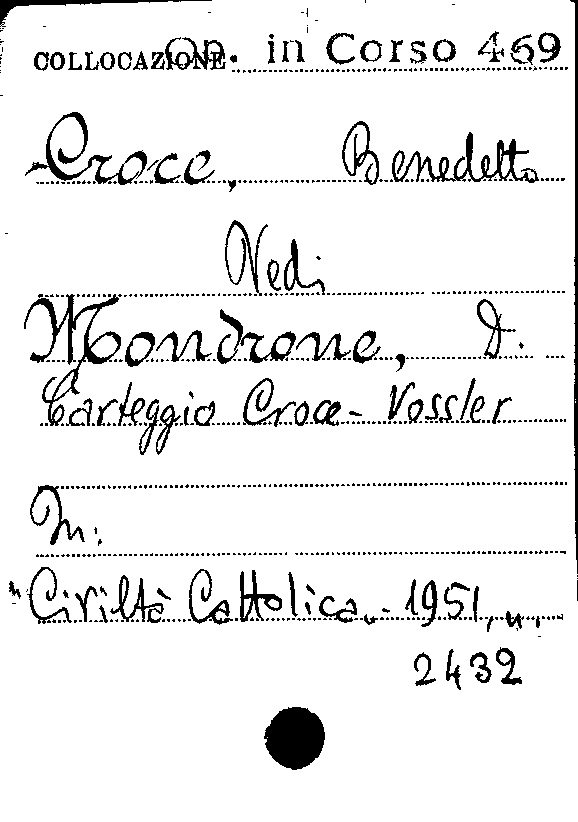 COLLOCAZIONE Op. in Corso 469
Croce, Benedetto
Vedi
Mondrone, D.
Carteggio Croce - Vossler
In:
"Civiltà Cattolica„ - 1951, n.
2432